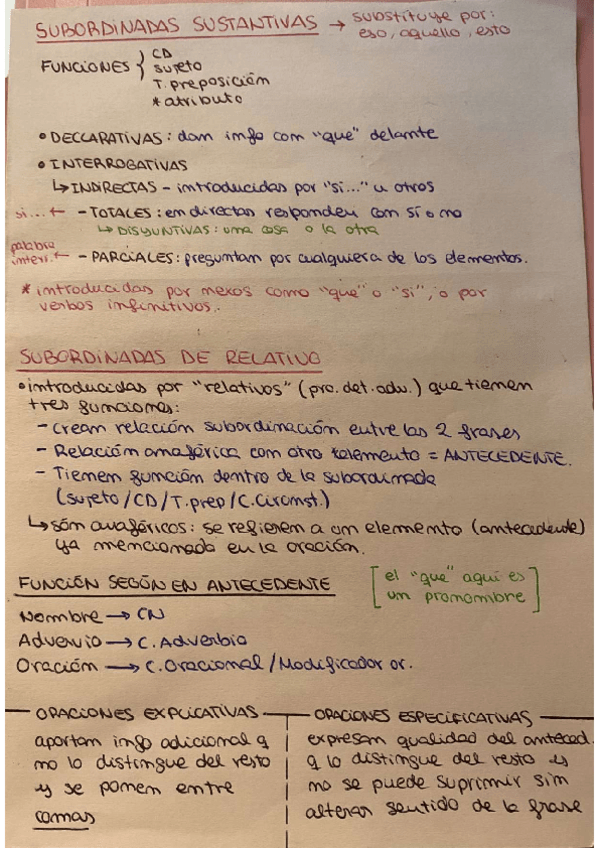 SUBORDINADAS SUSTANTIVAS → substituye por:
eso, aquello, esto
FUNCIONES { CD
sujeto
T. preposición
* atributo
• DECLARATIVAS: dan info con "que" delante
• INTERROGATIVAS
↳ INDIRECTAS - introducidas por "si..." u otros
si... ← - TOTALES: en directas responden con sí o no
↳ DISYUNTIVAS: una cosa o la otra
palabra
interr. ← - PARCIALES: preguntan por cualquiera de los elementos.
* introducidas por nexos como "que" o "si", o por
verbos infinitivos.
SUBORDINADAS DE RELATIVO
• introducidas por "relativos" (pro. det. adv.) que tienen
tres funciones:
- Crean relación subordinación entre las 2 frases
- Relación anafórica con otro telemento = ANTECEDENTE.
- Tienen función dentro de la subordinada
(sujeto/CD/T.prep/C.Circonst.)
↳ són anafóricos: se refieren a un elemento (antecedente)
ya mencionado en la oración.
FUNCIÓN SEGÚN EN ANTECEDENTE
[el "que" aquí es
un pronombre]
Nombre → CN
Advervio → C. Adverbio
Oración → C. Oracional / Modificador or.
ORACIONES EXPLICATIVAS
aportan info adicional q
no lo distingue del resto
y se ponen entre
comas
ORACIONES ESPECIFICATIVAS
expresan qualidad del anteced.
q lo distingue del resto y
no se puede suprimir sin
alterar sentido de la frase